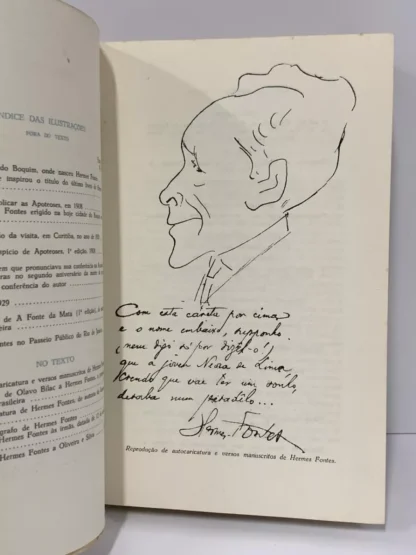 ÍNDICE DAS ILUSTRAÇÕES
FORA DO TEXTO
do Boquim, onde nasceu Hermes Fontes
e inspirou o título do último livro
plicar as Apoteoses, em 1908
Fontes erigido na hoje cidade de
o da visita, em Curitiba, no ano de
spício de Apoteoses, 1ª edição, 1908
em que pronunciava sua conferência
ras no segundo aniversário da morte do
conferência do autor
929
de A Fonte da Mata (1ª edição),
leira
ntes no Passeio Público do Rio de Janeiro
NO TEXTO
aricatura e versos manuscritos de Hermes Fontes
de Olavo Bilac a Hermes Fontes
rasileira
atura de Hermes Fontes, de autoria de
grafo de Hermes Fontes
Hermes Fontes às irmãs, datada de
Hermes Fontes a Oliveira e Silva
Com esta careta por cima,
e o nome embaixo, supponho
(nem sei só por dizel-o!)
que a joven Neusa de Lima,
crendo que vae ler um sonho,
descubra num pesadêlo...
Hermes Fontes
Reprodução de autocaricatura e versos manuscritos de Hermes Fontes.